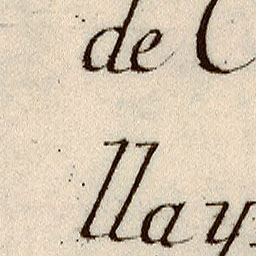 de C
llay